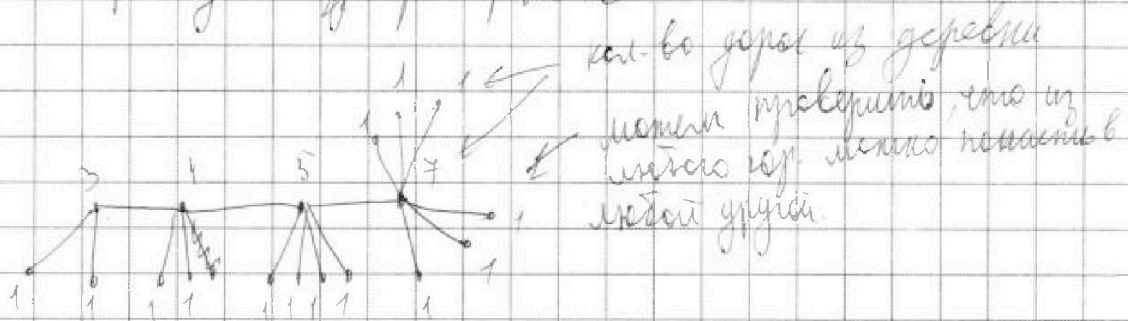 кол-во дорог из деревни
можем проверить, что из
любого гор. можно попасть в
любой другой.
1 1
1
3 4 5 7
1
1
1 1 1 1 1 1 1 1 1